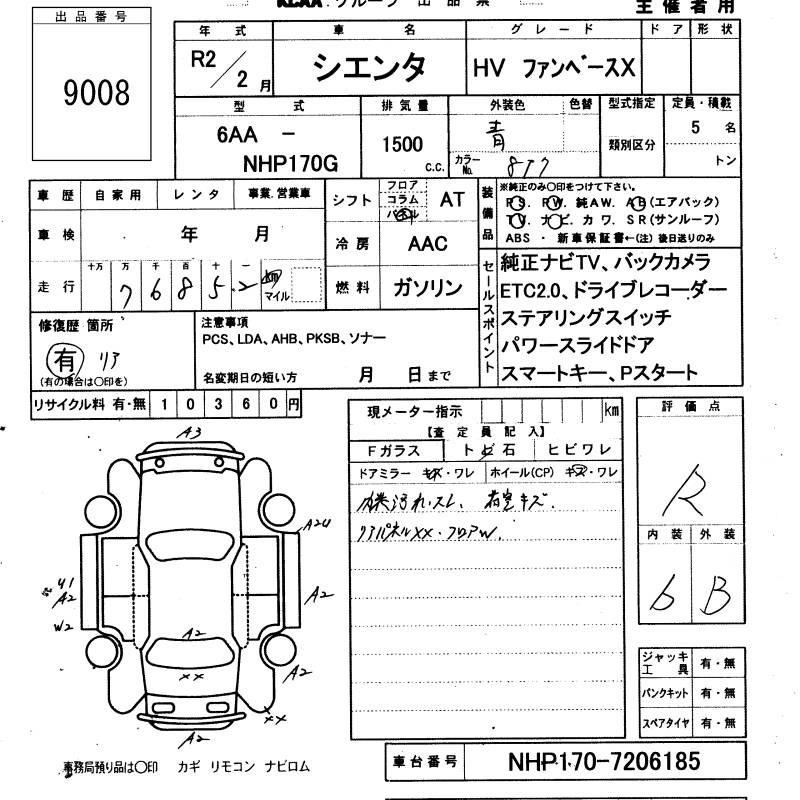 出品番号
9008
KCAA グループ 出品票
主催者用
年式 車名 グレード ドア 形状
R2/2月 シエンタ HV ファンベースX
型式 排気量 外装色 色替 型式指定 定員・積載
6AA - NHP170G
1500 c.c.
青
カラーNo. 8T7
類別区分
5 名
トン
車歴 自家用 レンタ 事業.営業車
車検 年 月
走行 十万 万 千 百 十 一
7 6 8 5 2 km マイル
シフト フロア コラム パネル AT
冷房 AAC
燃料 ガソリン
装備品
※純正のみ○印をつけて下さい。
PS. PW. 純AW. AB(エアバック)
TV. ナビ. カワ. SR(サンルーフ)
ABS ・ 新車保証書←(注)後日送りのみ
セールスポイント
純正ナビTV、バックカメラ
ETC2.0、ドライブレコーダー
ステアリングスイッチ
パワースライドドア
スマートキー、Pスタート
修復歴 箇所
有 リア
(有の場合は○印を)
注意事項
PCS、LDA、AHB、PKSB、ソナー
名変期日の短い方 月 日まで
リサイクル料 有・無 1 0 3 6 0 円
現メーター指示 km
【査定員記入】
Fガラス トビ石 ヒビワレ
ドアミラー キズ・ワレ ホイール(CP) キズ・ワレ
内装汚れ.スレ、荷室キズ.
リアパネルXX・フロアW.
評価点
R
内装 外装
6 B
ジャッキ工具 有・無
パンクキット 有・無
スペアタイヤ 有・無
A3
A2U
U1
A2
W2
A2
A2
XX
A2
XX
A2
事務局預り品は○印 カギ リモコン ナビロム
車台番号 NHP170-7206185